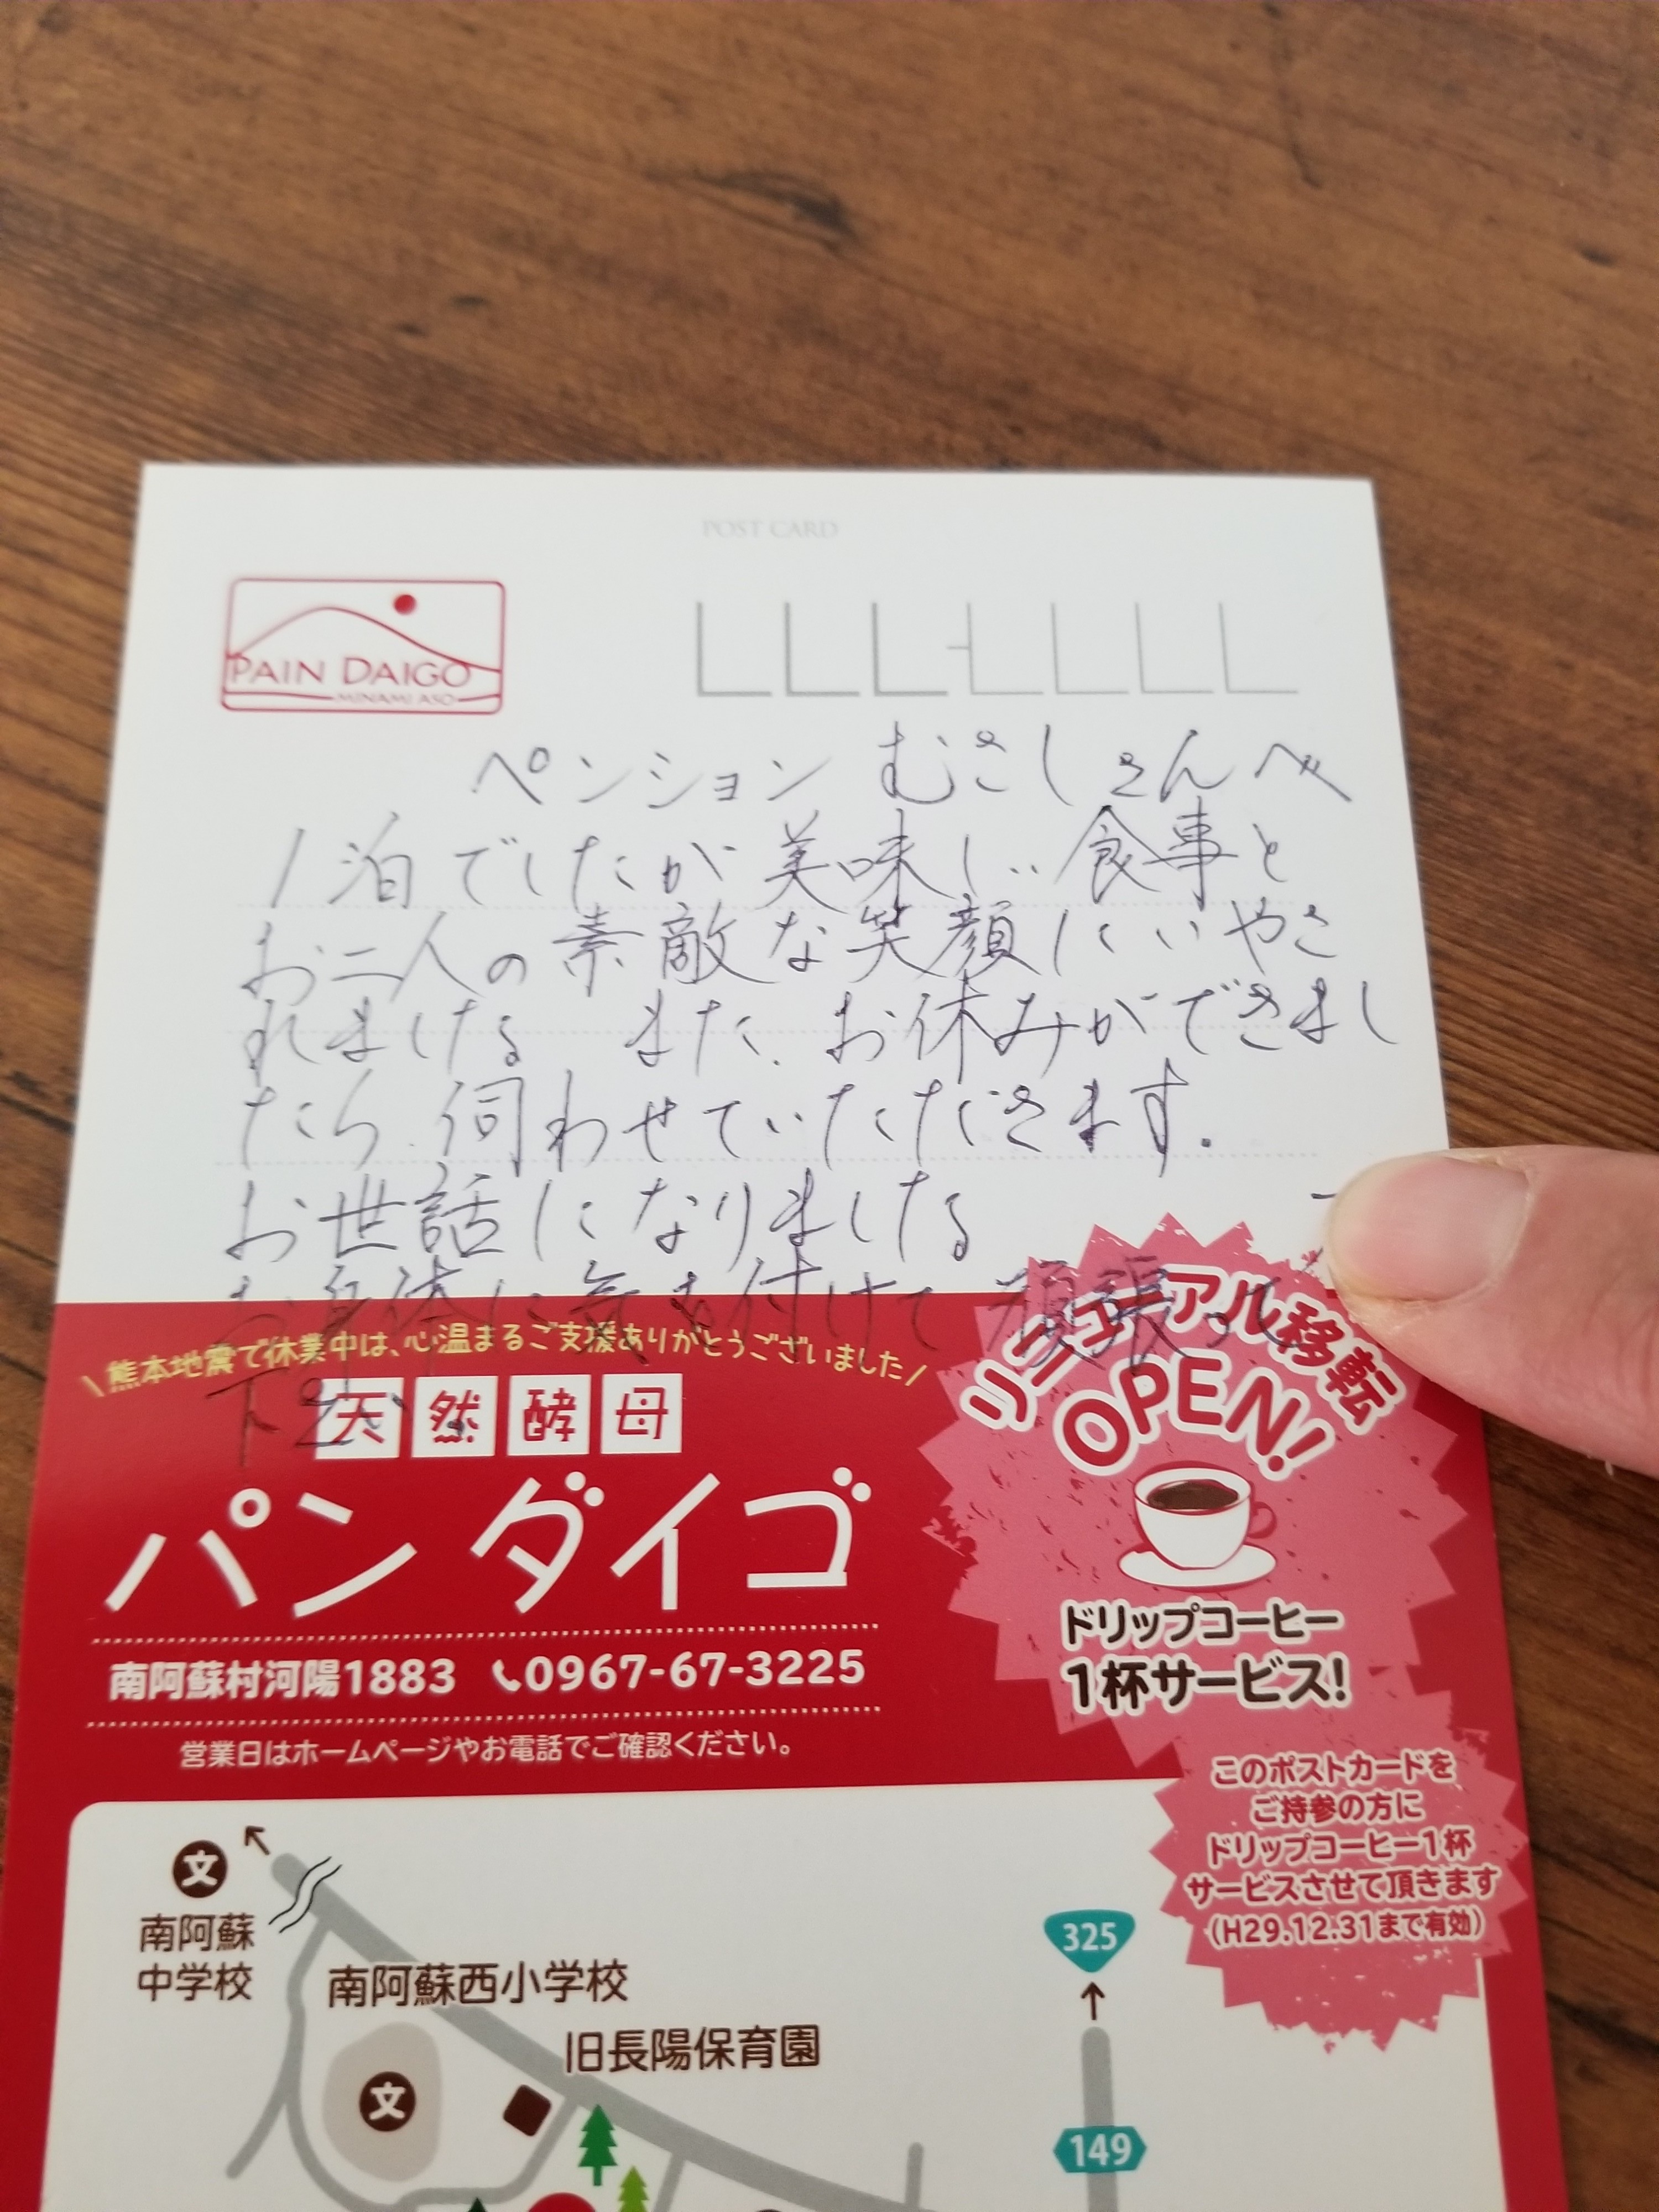 POST CARD
PAIN DAIGO
MINAMI ASO
ペンション むさしさんへ
1泊でしたが美味しい食事と
お二人の素敵な笑顔にいやさ
れました また、お休みができまし
たら、伺わせていただきます。
お世話になりました
お身体に気を付けて頑張って
下さい
\熊本地震で休業中は、心温まるご支援ありがとうございました/
天然酵母
パン ダイゴ
南阿蘇村河陽1883 0967-67-3225
営業日はホームページやお電話でご確認ください。
リニューアル移転
OPEN!
ドリップコーヒー
1杯サービス!
このポストカードを
ご持参の方に
ドリップコーヒー1杯
サービスさせて頂きます
(H29.12.31まで有効)
文
南阿蘇
中学校
南阿蘇西小学校
旧長陽保育園
文
325
149